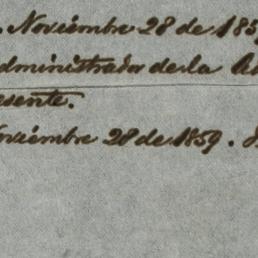 . Noviembre 28 de 185
dministrador de la A
esente.
oviembre 28 de 1859.